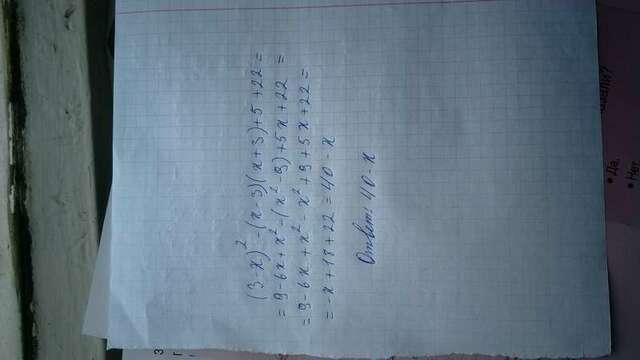 З
Г
(3-x)² -(x-3)(x+3)+5+22=
= 9-6x+x²-(x²-9)+5x+22 =
= 9-6x+x²-x²+9+5x+22=
= -x+18+22=40-x
Ответ: 40-x
• Да.
• Нет